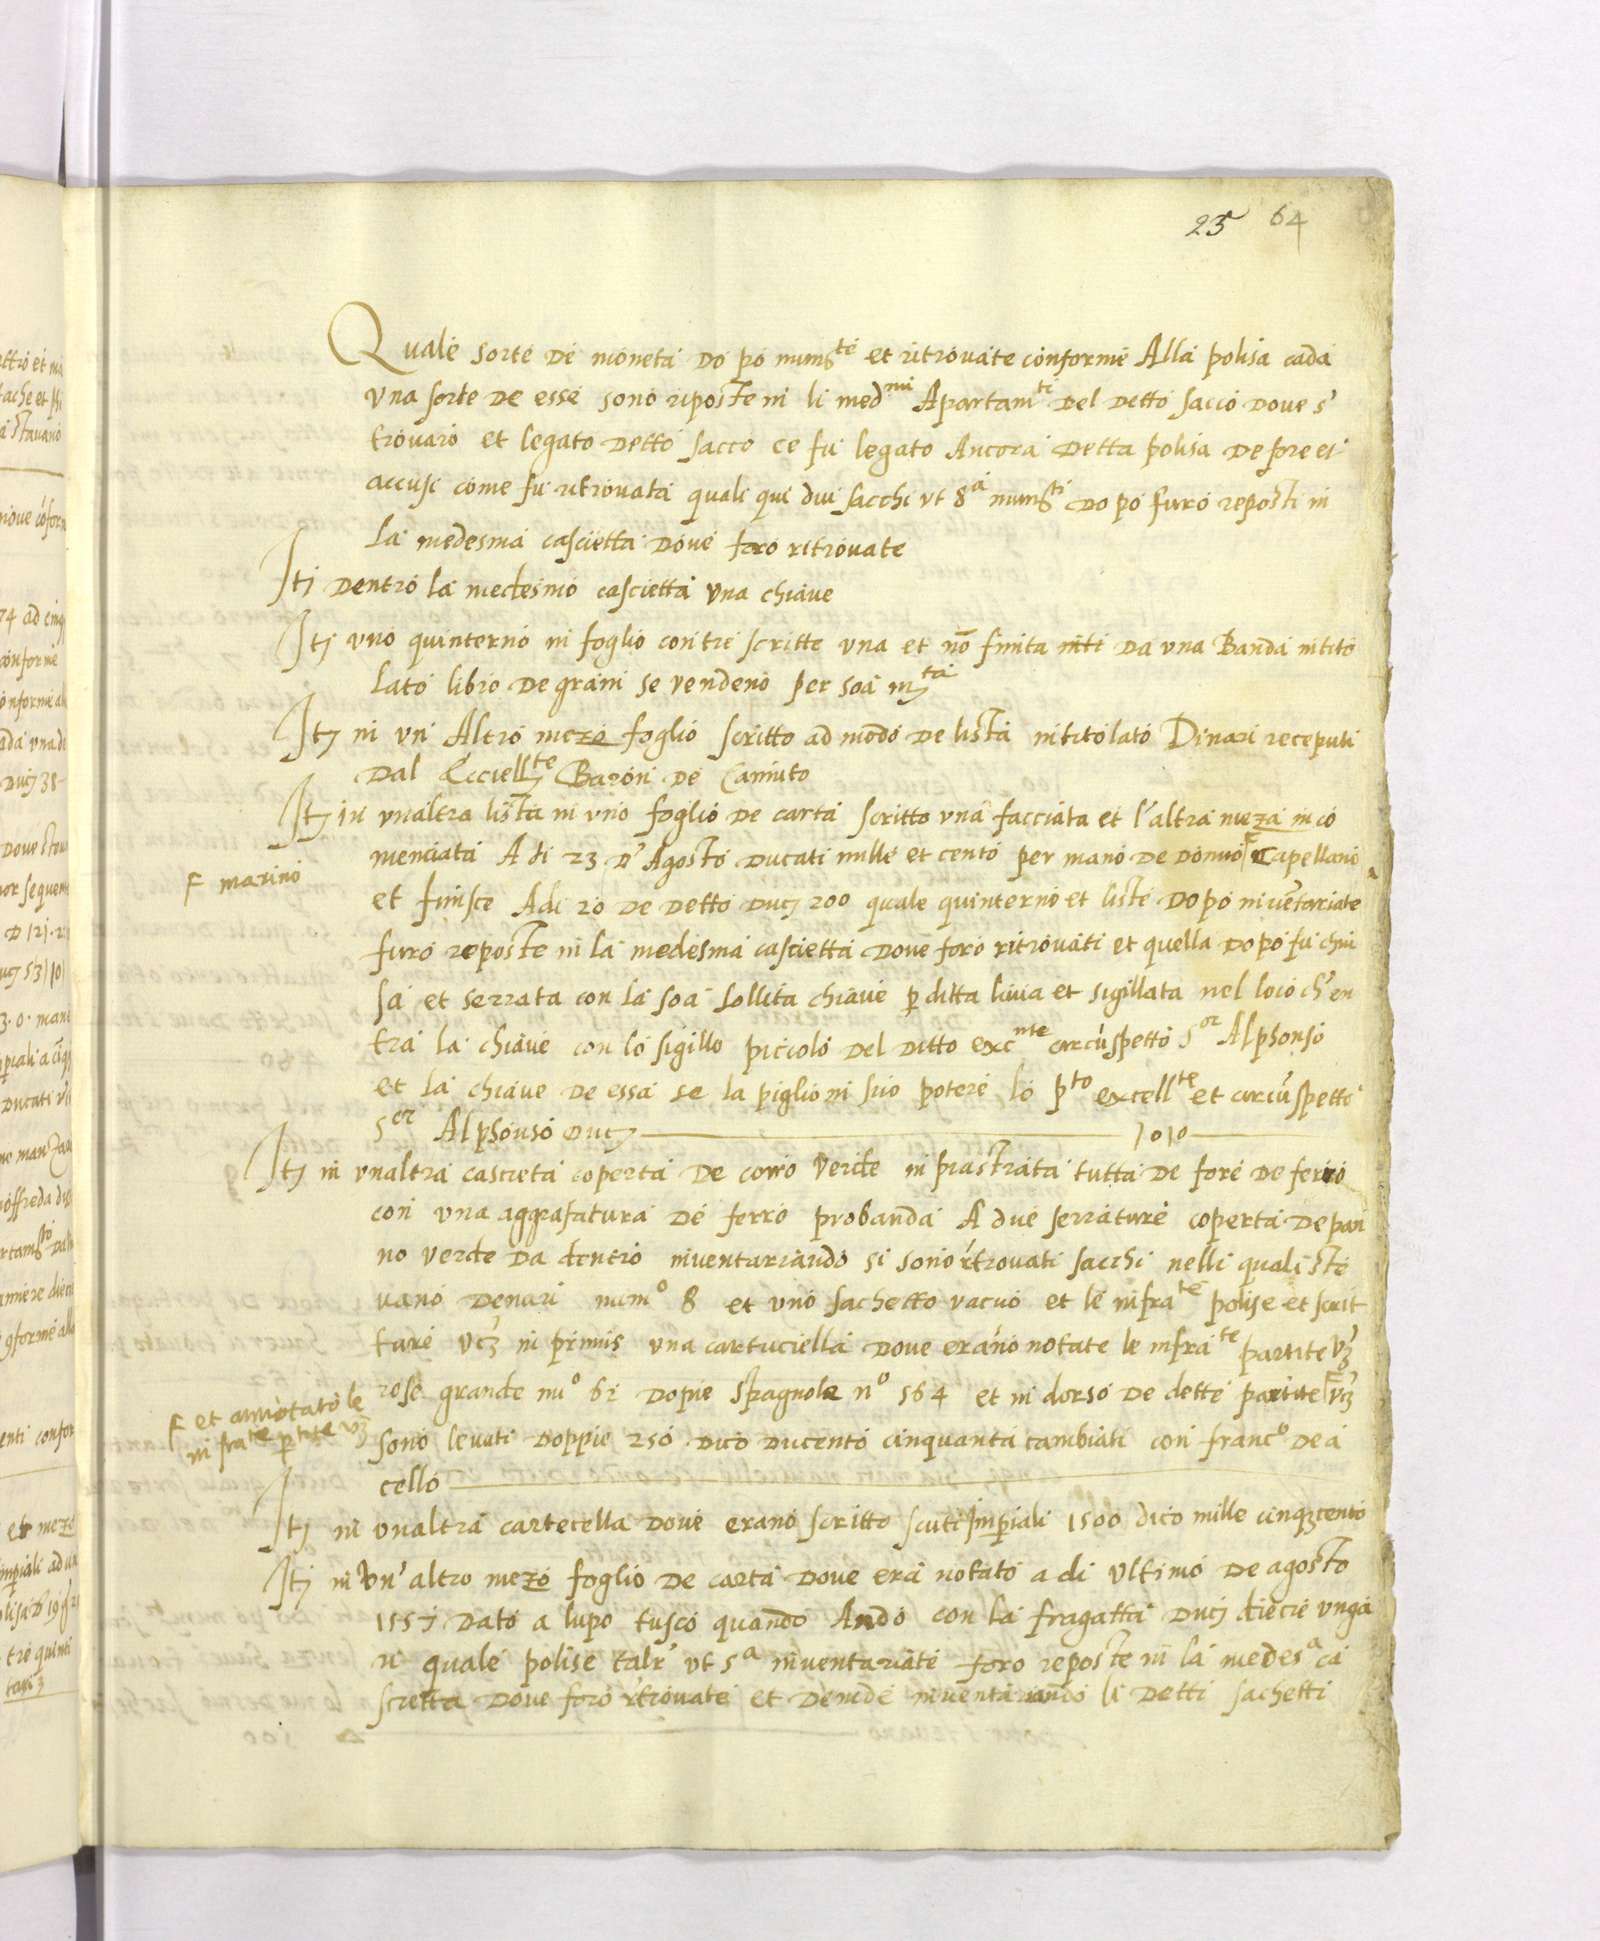 25 64
Quale sorte de moneta dopo num.te et ritrovate conforme Alla polisa cada
una sorte de esse sono riposte in li med.mi Apartam.ti del detto sacco dove s'
trovaro et legato detto sacco ce fu legato Ancora detta polisa
accusi come fu ritrovata quali qui dui sacchi ut s.a num.ti dopo furo reposti in
La medesma cascietta dove foro ritrovate
Itj dentro la medesmo cascietta una chiave
Itj uno quinterno in foglio con tre scritte una et nō finita da una Banda intito
lato libro de grani se vendeno per soa m.tà
Itj in un Altro mezo foglio scritto ad modo de lista intitolato Dinari receputi
dal Eccell.te Baroni de Caniuto
Itj in unaltra lista in uno foglio de carta scritto una facciata et l'altra meza inco
menciata A di 23 d'Agosto ducati mille et cento per mano de donno Γ Capellano
Γ marino
et finisce Adi 20 de detto ducj 200 quale quinterno et liste dopo inventariate
furo reposte in la medesma cascietta dove foro ritrovati et quella dopo fu chiu
sa et serrata con la soa sollita chiave p ditta livia et sigillata nel loco ch'en
tra la chiave con lo sigillo piccolo del ditto exc.nte circūspetto S.or Alphonso
et la chiave de essa se la piglio in suo potere lo p.to excell.te et circūspetto
S.or Alphonso ducj 1010
Itj in unaltra cascieta coperta de coiro verde inpiastrata tutta de fore de ferro
con una aggrafatura de ferro probanda A due serrature coperta de pan
no verde da dentro inventariando si sono rtrovati sacchi nelli quali ste
vano denari num.o 8 et uno sachetto vacuo et le infra.te polise et scrit
ture vz in primis una cartuciella dove erano notate le infra.te partite vz
rose grande nu.o 62 dopie spagnole n.o 564 et in dorso de dette partite Γ vz
Γ et annotato le
infra.te p.tite vz
sono levati doppie 250 dico ducento cinquanta cambiati con franc.o de a
cello
Itj in unaltra cartecella dove erano scritto scuti Imperiali 1500 dico mille cinqcento
Itj in un'altro mezo foglio de carta dove era notato a di ultimo de agosto
1557 dato a lupo tusco quando Ando con la fragatta ducj diecie unga
ri quale polise talr' ut s.a inventariate foro reposte in la medes.a ca
scietta dove foro rtrovate et deinde inventariando li detti sachetti